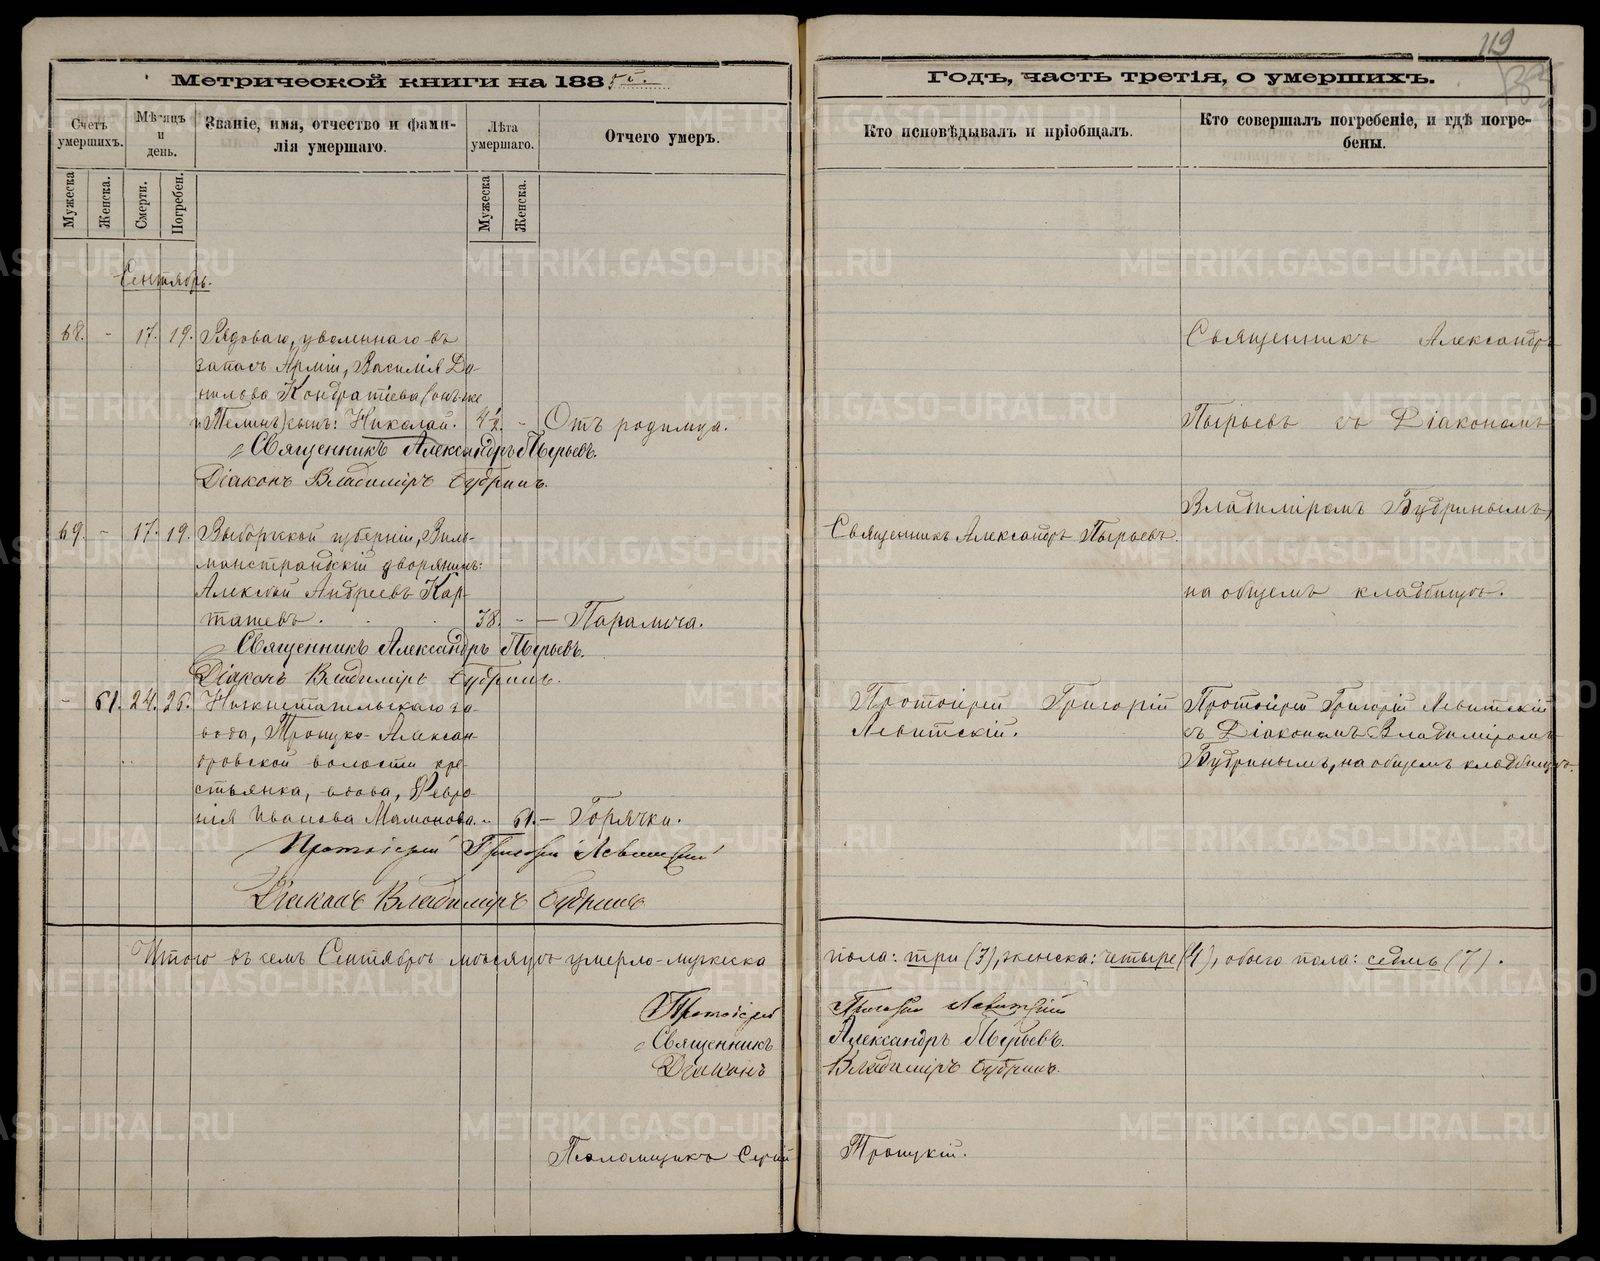 119
Метрической книги на 1885 г.
Годъ, часть третія, о умершихъ.
Счетъ умершихъ.
Мѣсяцъ и день.
Званіе, имя, отчество и фами-
лія умершаго.
Лѣта умершаго.
Отчего умеръ.
Кто исповѣдывалъ и пріобщалъ.
Кто совершалъ погребеніе, и гдѣ погре-
бены.
Мужеска
Женска.
Смерти.
Погребен.
Мужеска
Женска.
Сентябрь.
68. - 17. 19. Рядоваго, уволеннаго въ
запасъ Арміи, Василія Да-
нилова Кондратіева (онъ-же
и Телинъ) сынъ: Николай. 4½. - Отъ родимца.
Священникъ Александръ Пырьевъ.
Діаконъ Владиміръ Бубринъ.
Священникъ Александръ
Пырьевъ съ Діакономъ
Владиміромъ Бубринымъ,
на общемъ кладбищѣ.
69. - 17. 19. Выборгской губерніи, Виль-
манстрандскій дворянинъ:
Алексѣй Андреевъ Кар-
ташевъ. 38. - - Параличa.
Священникъ Александръ Пырьевъ.
Діаконъ Владиміръ Бубринъ.
Священникъ Александръ Пырьевъ.
- 61. 24. 26. Нижнетагильскаго за-
вода, Троицко-Алексан-
дровской волости кре-
стьянка, вдова, Февро-
нія Иванова Мамонова. 61. - Горячки.
Протоіерей Григорій Левитскій
Діаконъ Владиміръ Бубринъ
Протоіерей Григорій
Левитскій.
Протоіерей Григорій Левитскій
съ Діакономъ Владиміромъ
Бубринымъ, на общемъ кладбищѣ.
Итого въ семъ Сентябрѣ мѣсяцѣ умерло-мужеска
пола: три (3), женска: четыре (4), обоего пола: седмь (7).
Протоіерей Григорій Левитскій
Священникъ Александръ Пырьевъ.
Діаконъ Владиміръ Бубринъ.
Псаломщикъ Сергій Троицкій.
METRIKI.GASO-URAL.RU